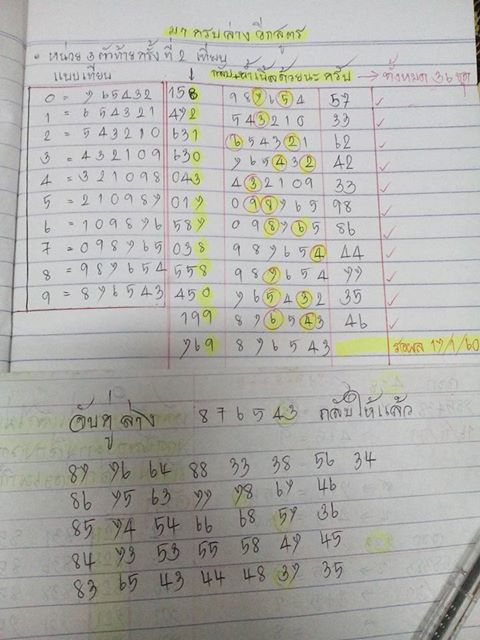 ครบล่าง อีกสูตร
• หน่วย 3 ตัวท้ายครั้งที่ 2 เทียบ
แบบเทียบ ↓ กลับหน้าหลังด้วยนะครับ → ทั้งหมด 36 ชุด
0 = 765432 158 987654 57 ✓
1 = 654321 472 543210 33 ✓
2 = 543210 631 654321 62 ✓
3 = 432109 630 765432 42 ✓
4 = 321098 043 432109 33 ✓
5 = 210987 017 098765 98 ✓
6 = 109876 587 098765 86 ✓
7 = 098765 038 987654 44 ✓
8 = 987654 558 987654 77 ✓
9 = 876543 450 765432 35 ✓
199 876543 46 ✓
769 876543 รอผล 17/1/60
จับคู่ล่าง 876543 กลับให้แล้ว
87 76 64 88 33 38 56 34
86 75 63 77 78 67 46
85 74 54 66 68 57 36
84 73 53 55 58 47 45
83 65 43 44 48 37 35